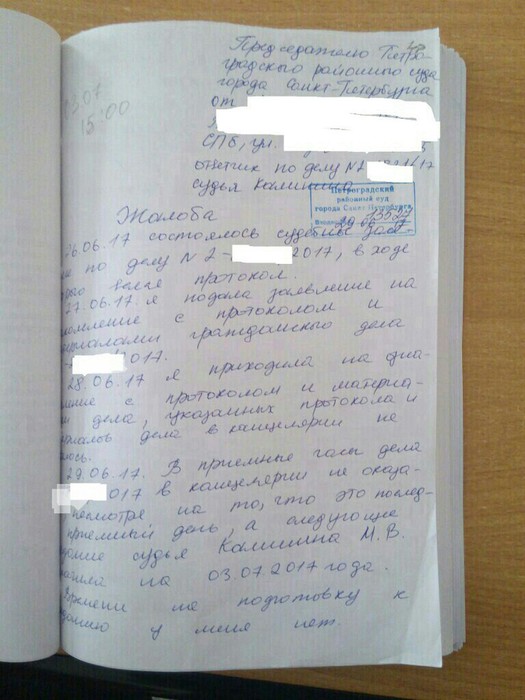 Председателю Петро-
градского районного суда
города Санкт-Петербурга
от
СПб, ул.
ответчик по делу №2 17
судья Калинина
03.07
15:00
Петроградский
районный суд
города Санкт-Петербурга
13527
29 06 17
Жалоба
26.06.17 состоялось судебное засе-
по делу №2- 2017, в ходе
протокол.
27.06.17 я подала заявление на
комление с протоколом и
гражданского дела
2017.
28.06.17 я приходила на озна-
ление с протоколом и материа-
дела, указанных протокола и
дела в канцелярии не
лось.
29.06.17. В приемные часы дела
017 в канцелярии не оказа-
несмотря на то, что это послед-
приемный день, а следующее
дание судья Калинина М.В.
на 03.07.2017 года.
Времени на подготовку к
данию у меня нет.